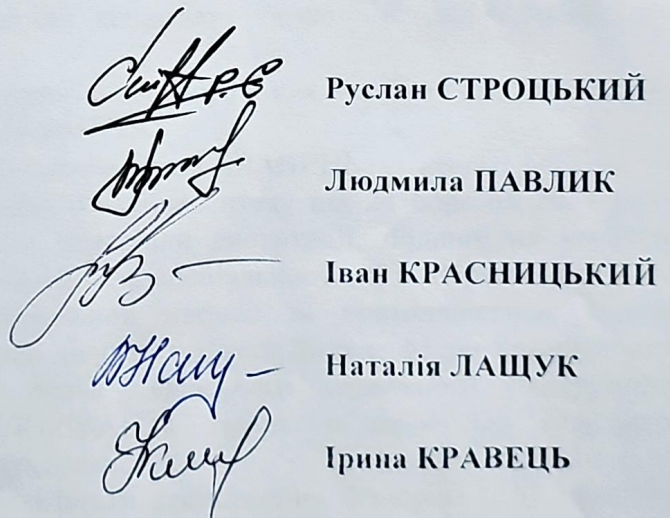 Руслан СТРОЦЬКИЙ
Людмила ПАВЛИК
Іван КРАСНИЦЬКИЙ
Наталія ЛАЩУК
Ірина КРАВЕЦЬ